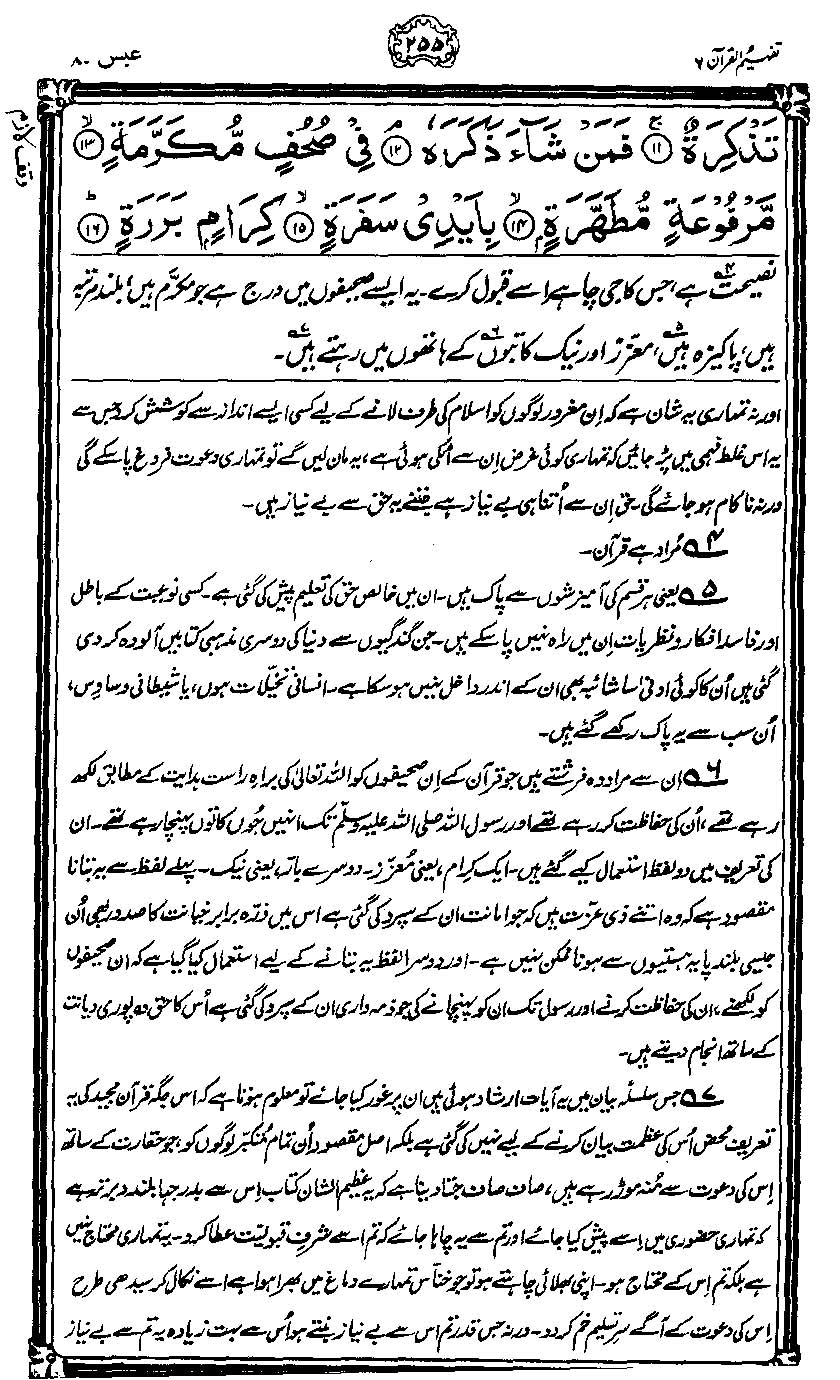 تفہیم القرآن ۶
۲۵۵
عبس ۸۰
تَذْكِرَةٌ ﴿۱۱﴾ فَمَنْ شَآءَ ذَكَرَهٗ ﴿۱۲﴾ فِيْ صُحُفٍ مُّكَرَّمَةٍ ﴿۱۳﴾
وقف لازم
مَّرْفُوْعَةٍ مُّطَهَّرَةٍ ﴿۱۴﴾ بِاَيْدِيْ سَفَرَةٍ ﴿۱۵﴾ كِرَامٍ بَرَرَةٍ ﴿۱۶﴾
نصیحت۴ ہے، جس کا جی چاہے اسے قبول کرے۔ یہ ایسے صحیفوں میں درج ہے جو مکرّم ہیں، بلند مرتبہ
ہیں، پاکیزہ ہیں۵، معزّز اور نیک کاتبوں۶ کے ہاتھوں میں رہتے ہیں۷۔
اور نہ تمہاری یہ شان ہے کہ اِن مغرور لوگوں کو اسلام کی طرف لانے کے لیے کسی ایسے انداز سے کوشش کرو جس سے
یہ اس غلط فہمی میں پڑ جائیں کہ تمہاری کوئی غرض اِن سے اٹکی ہوئی ہے، یہ مان لیں گے تو تمہاری دعوت فروغ پا سکے گی
ورنہ ناکام ہو جائے گی۔ حق اِن سے اُتنا ہی بے نیاز ہے جتنے یہ حق سے بے نیاز ہیں۔
۴ مُراد ہے قرآن۔
۵ یعنی ہر قسم کی آمیزشوں سے پاک ہیں۔ ان میں خالص حق کی تعلیم پیش کی گئی ہے۔ کسی نوعیت کے باطل
اور فاسد افکار و نظریات اِن میں راہ نہیں پا سکے ہیں۔ جن گندگیوں سے دنیا کی دوسری مذہبی کتابیں آلودہ کر دی
گئی ہیں اُن کا کوئی ادنیٰ سا شائبہ بھی ان کے اندر داخل نہیں ہو سکا ہے۔ انسانی تخیلات ہوں، یا شیطانی وساوس،
اُن سب سے یہ پاک رکھے گئے ہیں۔
۶ اِن سے مراد وہ فرشتے ہیں جو قرآن کے اِن صحیفوں کو اللہ تعالیٰ کی براہِ راست ہدایت کے مطابق لکھ
رہے تھے، اُن کی حفاظت کر رہے تھے اور رسول اللہ صلی اللہ علیہ وسلّم تک انہیں جُوں کا توں پہنچا رہے تھے۔ ان
کی تعریف میں دو لفظ استعمال کیے گئے ہیں۔ ایک کِرام، یعنی مُعزّز۔ دوسرے بارّ، یعنی نیک۔ پہلے لفظ سے یہ بتانا
مقصود ہے کہ وہ اتنے ذی عزّت ہیں کہ جو امانت ان کے سپرد کی گئی ہے اس میں ذرّہ برابر خیانت کا صدور بھی اُن
جیسی بلند پایہ ہستیوں سے ہونا ممکن نہیں ہے۔ اور دوسرا لفظ یہ بتانے کے لیے استعمال کیا گیا ہے کہ ان صحیفوں
کو لکھنے، ان کی حفاظت کرنے اور رسول تک ان کو پہنچانے کی جو ذمہ داری ان کے سپرد کی گئی ہے اُس کا حق وہ پوری دیانت
کے ساتھ انجام دیتے ہیں۔
۷ جس سلسلۂ بیان میں یہ آیات ارشاد ہوئی ہیں ان پر غور کیا جائے تو معلوم ہوتا ہے کہ اس جگہ قرآن مجید کی یہ
تعریف محض اُس کی عظمت بیان کرنے کے لیے نہیں کی گئی ہے بلکہ اصل مقصود اُن تمام مُتکبّر لوگوں کو، جو حقارت کے ساتھ
اِس کی دعوت سے مُنہ موڑ رہے ہیں، صاف صاف جتا دینا ہے کہ یہ عظیم الشان کتاب اِس سے بدرجہا بلند و برتر ہے
کہ تمہاری حضوری میں اِسے پیش کیا جائے اور تم سے یہ چاہا جائے کہ تم اسے شرفِ قبولیت عطا کرو۔ یہ تمہاری محتاج نہیں
ہے بلکہ تم اِس کے محتاج ہو۔ اپنی بھلائی چاہتے ہو تو جو خنّاس تمہارے دماغ میں بھرا ہوا ہے اسے نکال کر سیدھی طرح
اِس کی دعوت کے آگے سرِ تسلیم خم کر دو۔ ورنہ جس قدر تم اس سے بے نیاز بنتے ہو اُس سے بہت زیادہ یہ تم سے بے نیاز